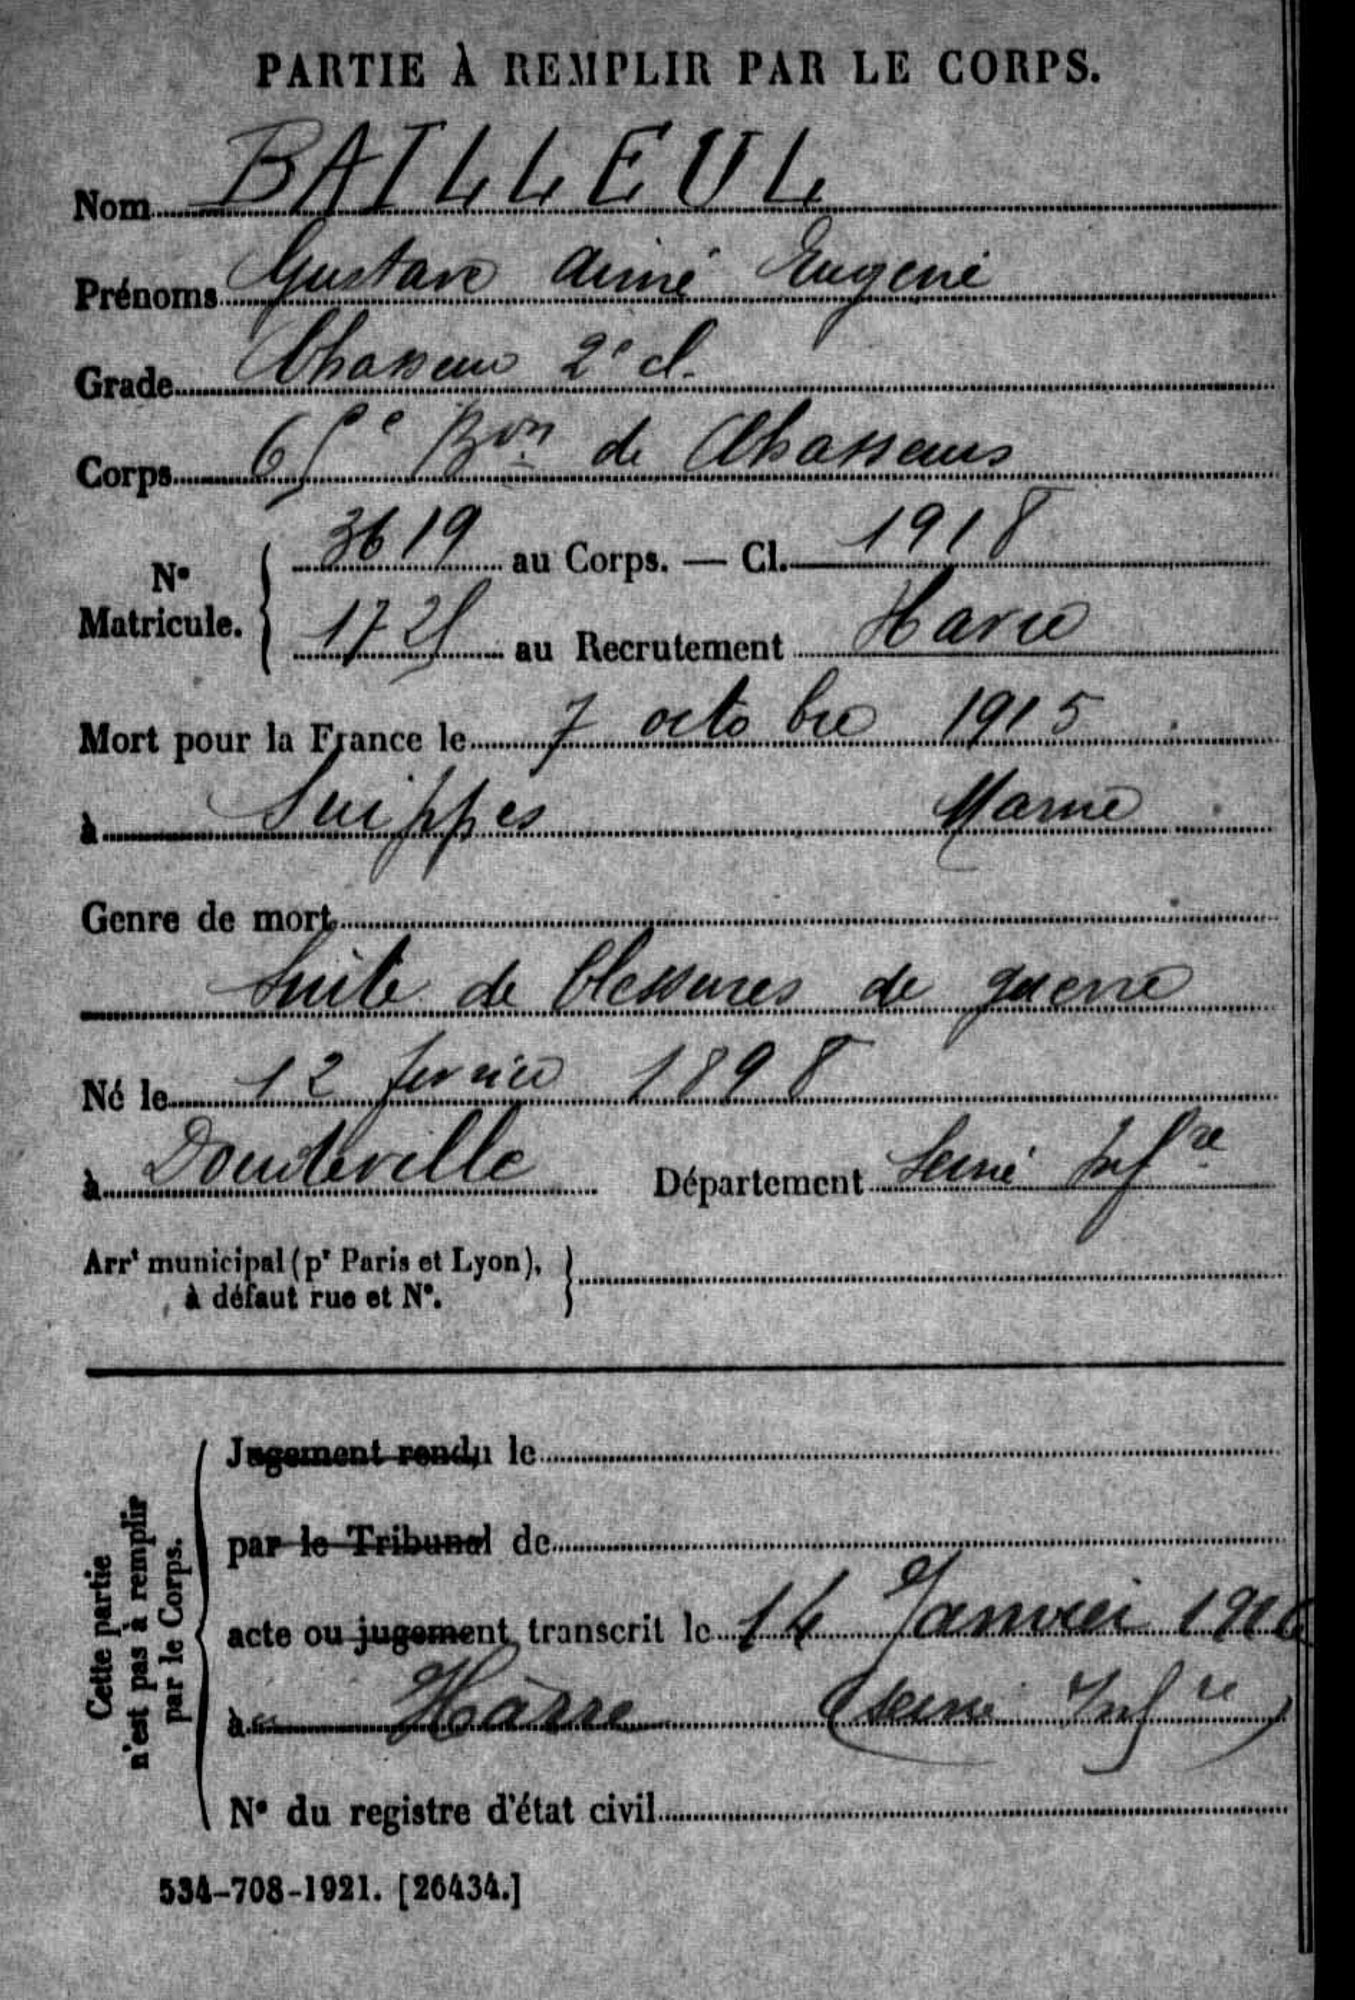 PARTIE À REMPLIR PAR LE CORPS.
Nom BAILLEUL
Prénoms Gustave Aimé Eugène
Grade Chasseur 2e cl.
Corps 65e Bon de Chasseurs
No Matricule. 3619 au Corps. — Cl. 1918
1725 au Recrutement Havre
Mort pour la France le 7 octobre 1915
à Suippes Marne
Genre de mort
Suite de blessures de guerre
Né le 12 février 1898
à Doudeville Département Seine Infre
Arrt municipal (pr Paris et Lyon),
à défaut rue et No.
Cette partie
n'est pas à remplir
par le Corps.
Jugement rendu le
par le Tribunal de
acte ou jugement transcrit le 14 Janvier 1916
à Hâvre (Seine Infre)
No du registre d'état civil
534-708-1921. [26434.]